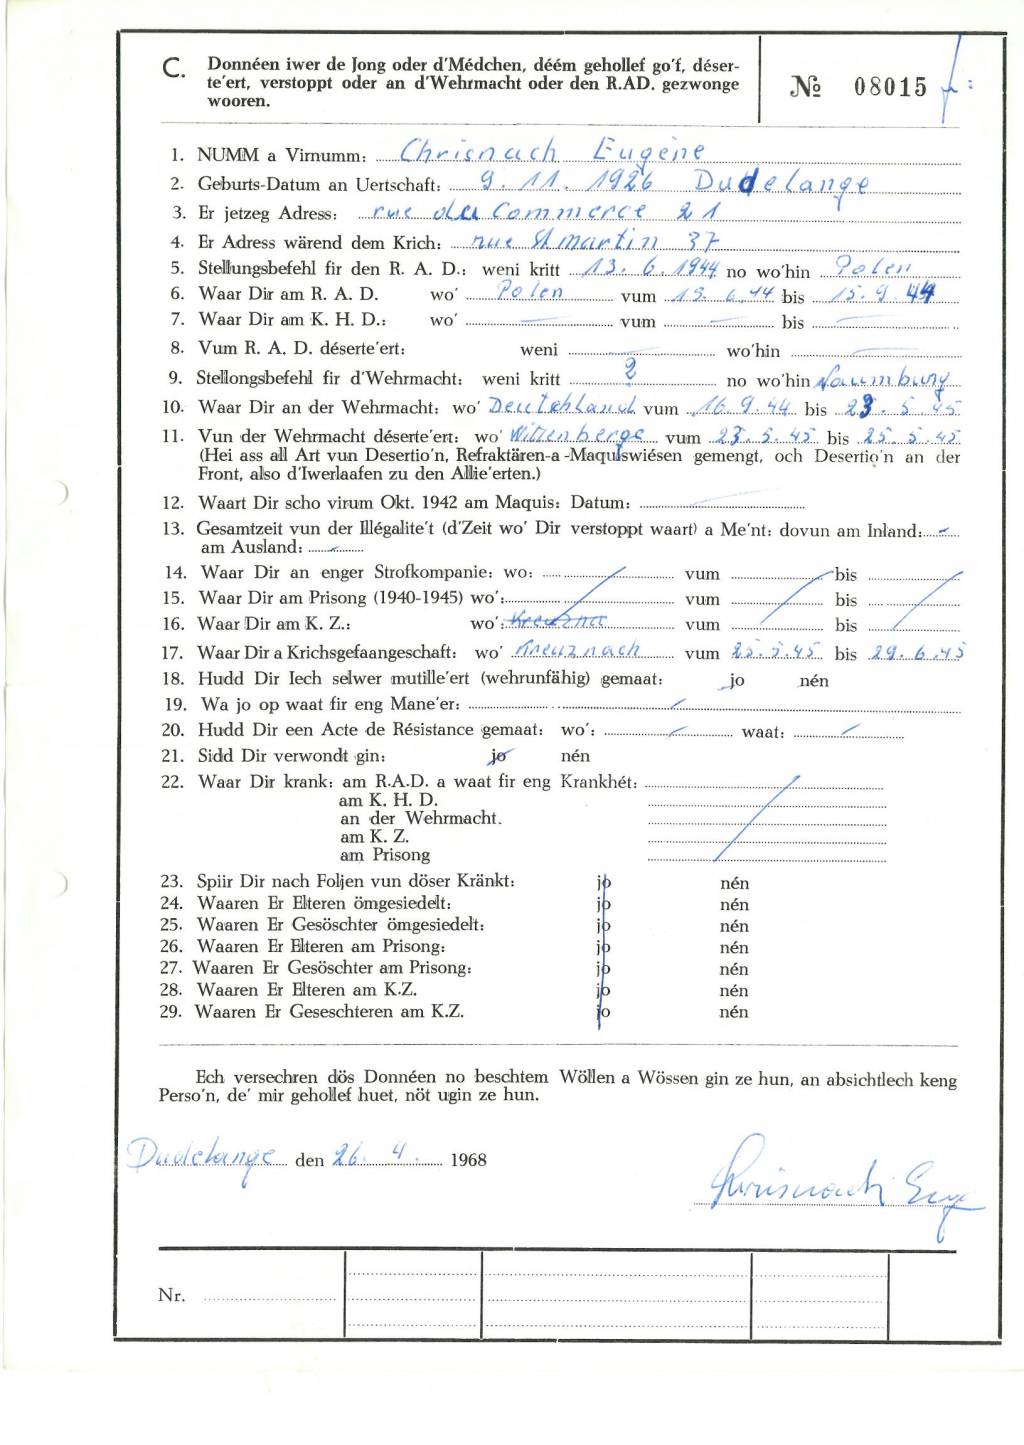 C. Donnéen iwer de Jong oder d'Médchen, déém gehollef go'f, déser-
te'ert, verstoppt oder an d'Wehrmacht oder den R.AD. gezwonge
wooren.
№ 08015
1. NUMM a Virnumm: Chrisnach Eugène
2. Geburts-Datum an Uertschaft: 9. 11. 1926 Dudelange
3. Er jetzeg Adress: rue du Commerce 21
4. Er Adress wärend dem Krich: rue St Martin 37
5. Stellungsbefehl fir den R. A. D.: weni kritt 13. 6. 1944 no wo'hin Polen
6. Waar Dir am R. A. D. wo' Polen vum 15. 6. 44 bis 15. 9. 44
7. Waar Dir am K. H. D.: wo' — vum — bis —
8. Vum R. A. D. déserte'ert: weni — wo'hin —
9. Stellongsbefehl fir d'Wehrmacht: weni kritt ? no wo'hin Naumburg
10. Waar Dir an der Wehrmacht: wo' Deutchland vum 16. 9. 44 bis 23. 5. 45
11. Vun der Wehrmacht déserte'ert: wo' Wittenberge vum 23. 5. 45 bis 25. 5. 45
(Hei ass all Art vun Desertio'n, Refraktären-a-Maquiswiésen gemengt, och Desertio'n an der
Front, also d'Iwerlaafen zu den Allie'erten.)
12. Waart Dir scho virum Okt. 1942 am Maquis: Datum:
13. Gesamtzeit vun der Illégalite't (d'Zeit wo' Dir verstoppt waart) a Me'nt: dovun am Inland:
am Ausland:
14. Waar Dir an enger Strofkompanie: wo: vum bis
15. Waar Dir am Prisong (1940-1945) wo': vum bis
16. Waar Dir am K. Z.: wo': Kreuzna vum bis
17. Waar Dir a Krichsgefaangeschaft: wo' Kreuznach vum 25. 5. 45 bis 29. 6. 45
18. Hudd Dir Iech selwer mutille'ert (wehrunfähig) gemaat: jo nén
19. Wa jo op waat fir eng Mane'er:
20. Hudd Dir een Acte de Résistance gemaat: wo': waat:
21. Sidd Dir verwondt gin: jo nén
22. Waar Dir krank: am R.A.D. a waat fir eng Krankhét:
am K. H. D.
an der Wehrmacht.
am K. Z.
am Prisong
23. Spiir Dir nach Foljen vun döser Kränkt: jo nén
24. Waaren Er Elteren ömgesiedelt: jo nén
25. Waaren Er Gesöschter ömgesiedelt: jo nén
26. Waaren Er Elteren am Prisong: jo nén
27. Waaren Er Gesöschter am Prisong: jo nén
28. Waaren Er Elteren am K.Z. jo nén
29. Waaren Er Geseschteren am K.Z. jo nén
Ech versechren dös Donnéen no beschtem Wöllen a Wössen gin ze hun, an absichtlech keng
Perso'n, de' mir gehollef huet, nöt ugin ze hun.
Dudelange den 26. 4. 1968
Chrisnach Eug
Nr.